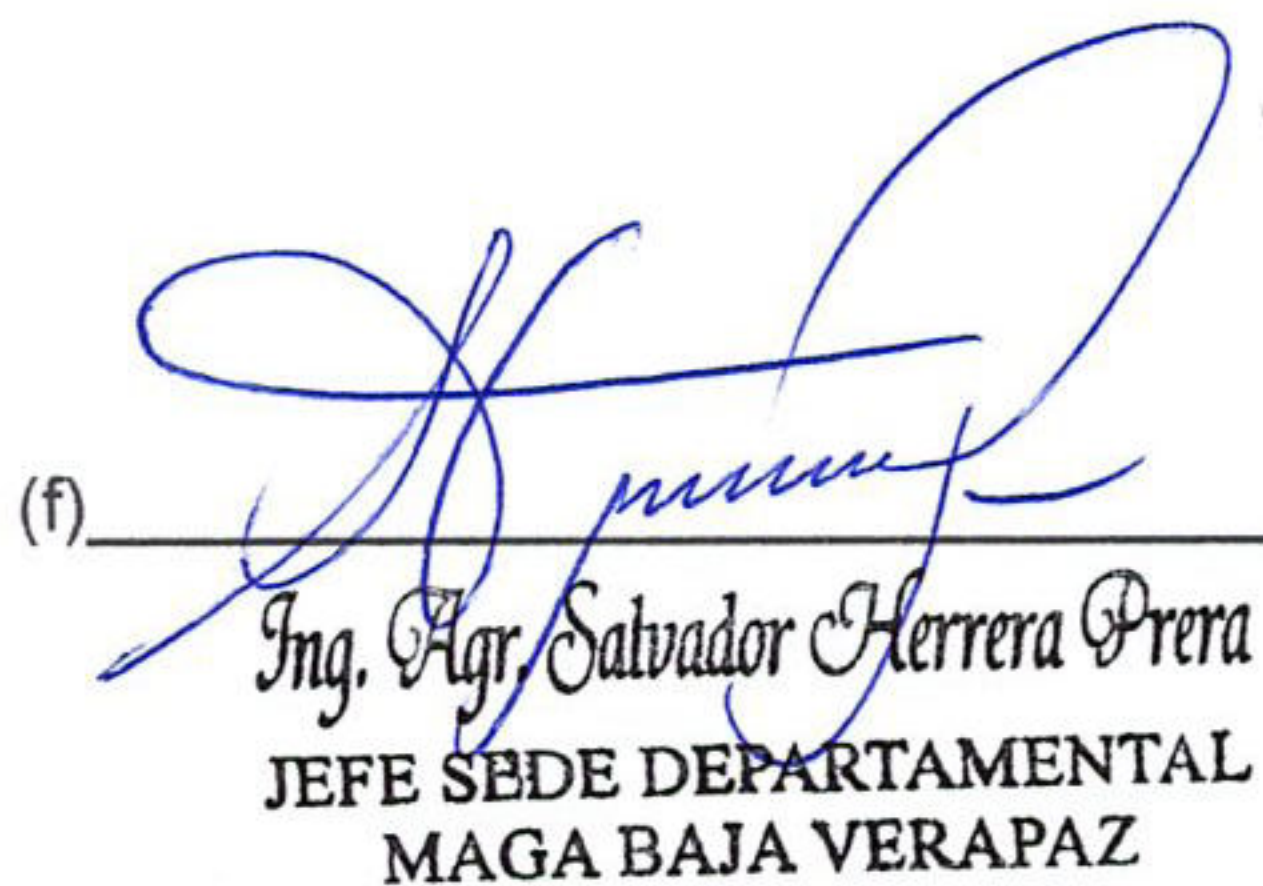 (f)
Ing. Agr. Salvador Herrera Prera
JEFE SEDE DEPARTAMENTAL
MAGA BAJA VERAPAZ